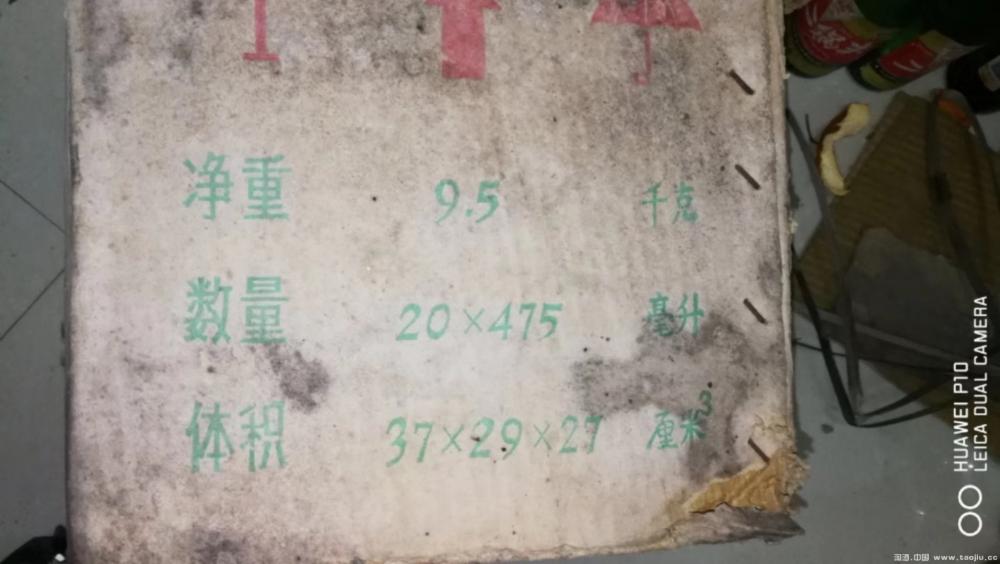 净重 9.5 千克
数量 20×475 毫升
体积 37×29×27 厘米3
HUAWEI P10
LEICA DUAL CAMERA
www.taojiu.cc